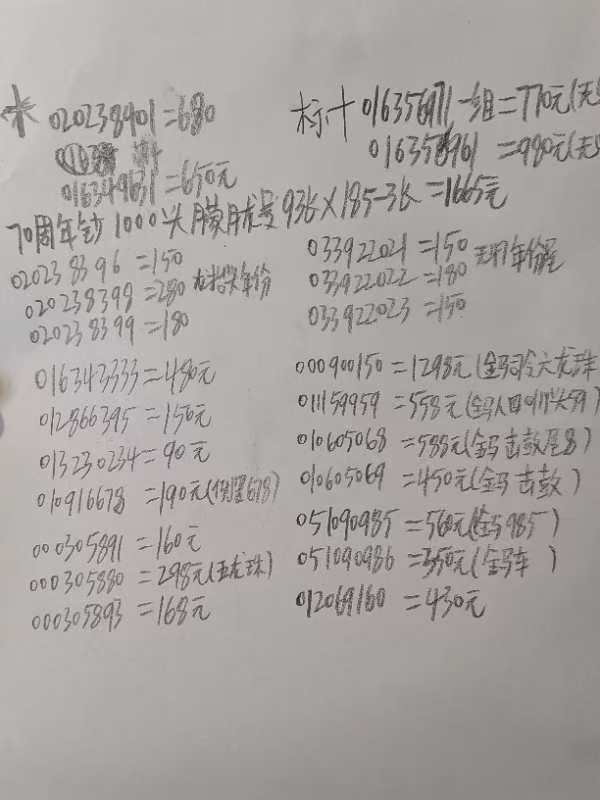 020238901=680
标十016356971一组=770元(无
016358961=980元(无
016349631=650元
70周年钞1000头朦胧号9张×185一张=1665元
020238396=150
020238398=280 年份
020238399=180
033922021=150
033922022=180 年份
033922023=150
016343333=480元
012866395=150元
013230234=90元
010916678=190元(倒置678)
000305891=160元
000305880=298元(五龙珠)
000305893=168元
000900150=1298元(金马司令六龙珠
011159959=558元(金马
010605068=588元(金马击鼓尾8)
010605069=450元(金马击鼓)
051090985=560元(金马985)
051090986=350元(金马车)
012069160=430元